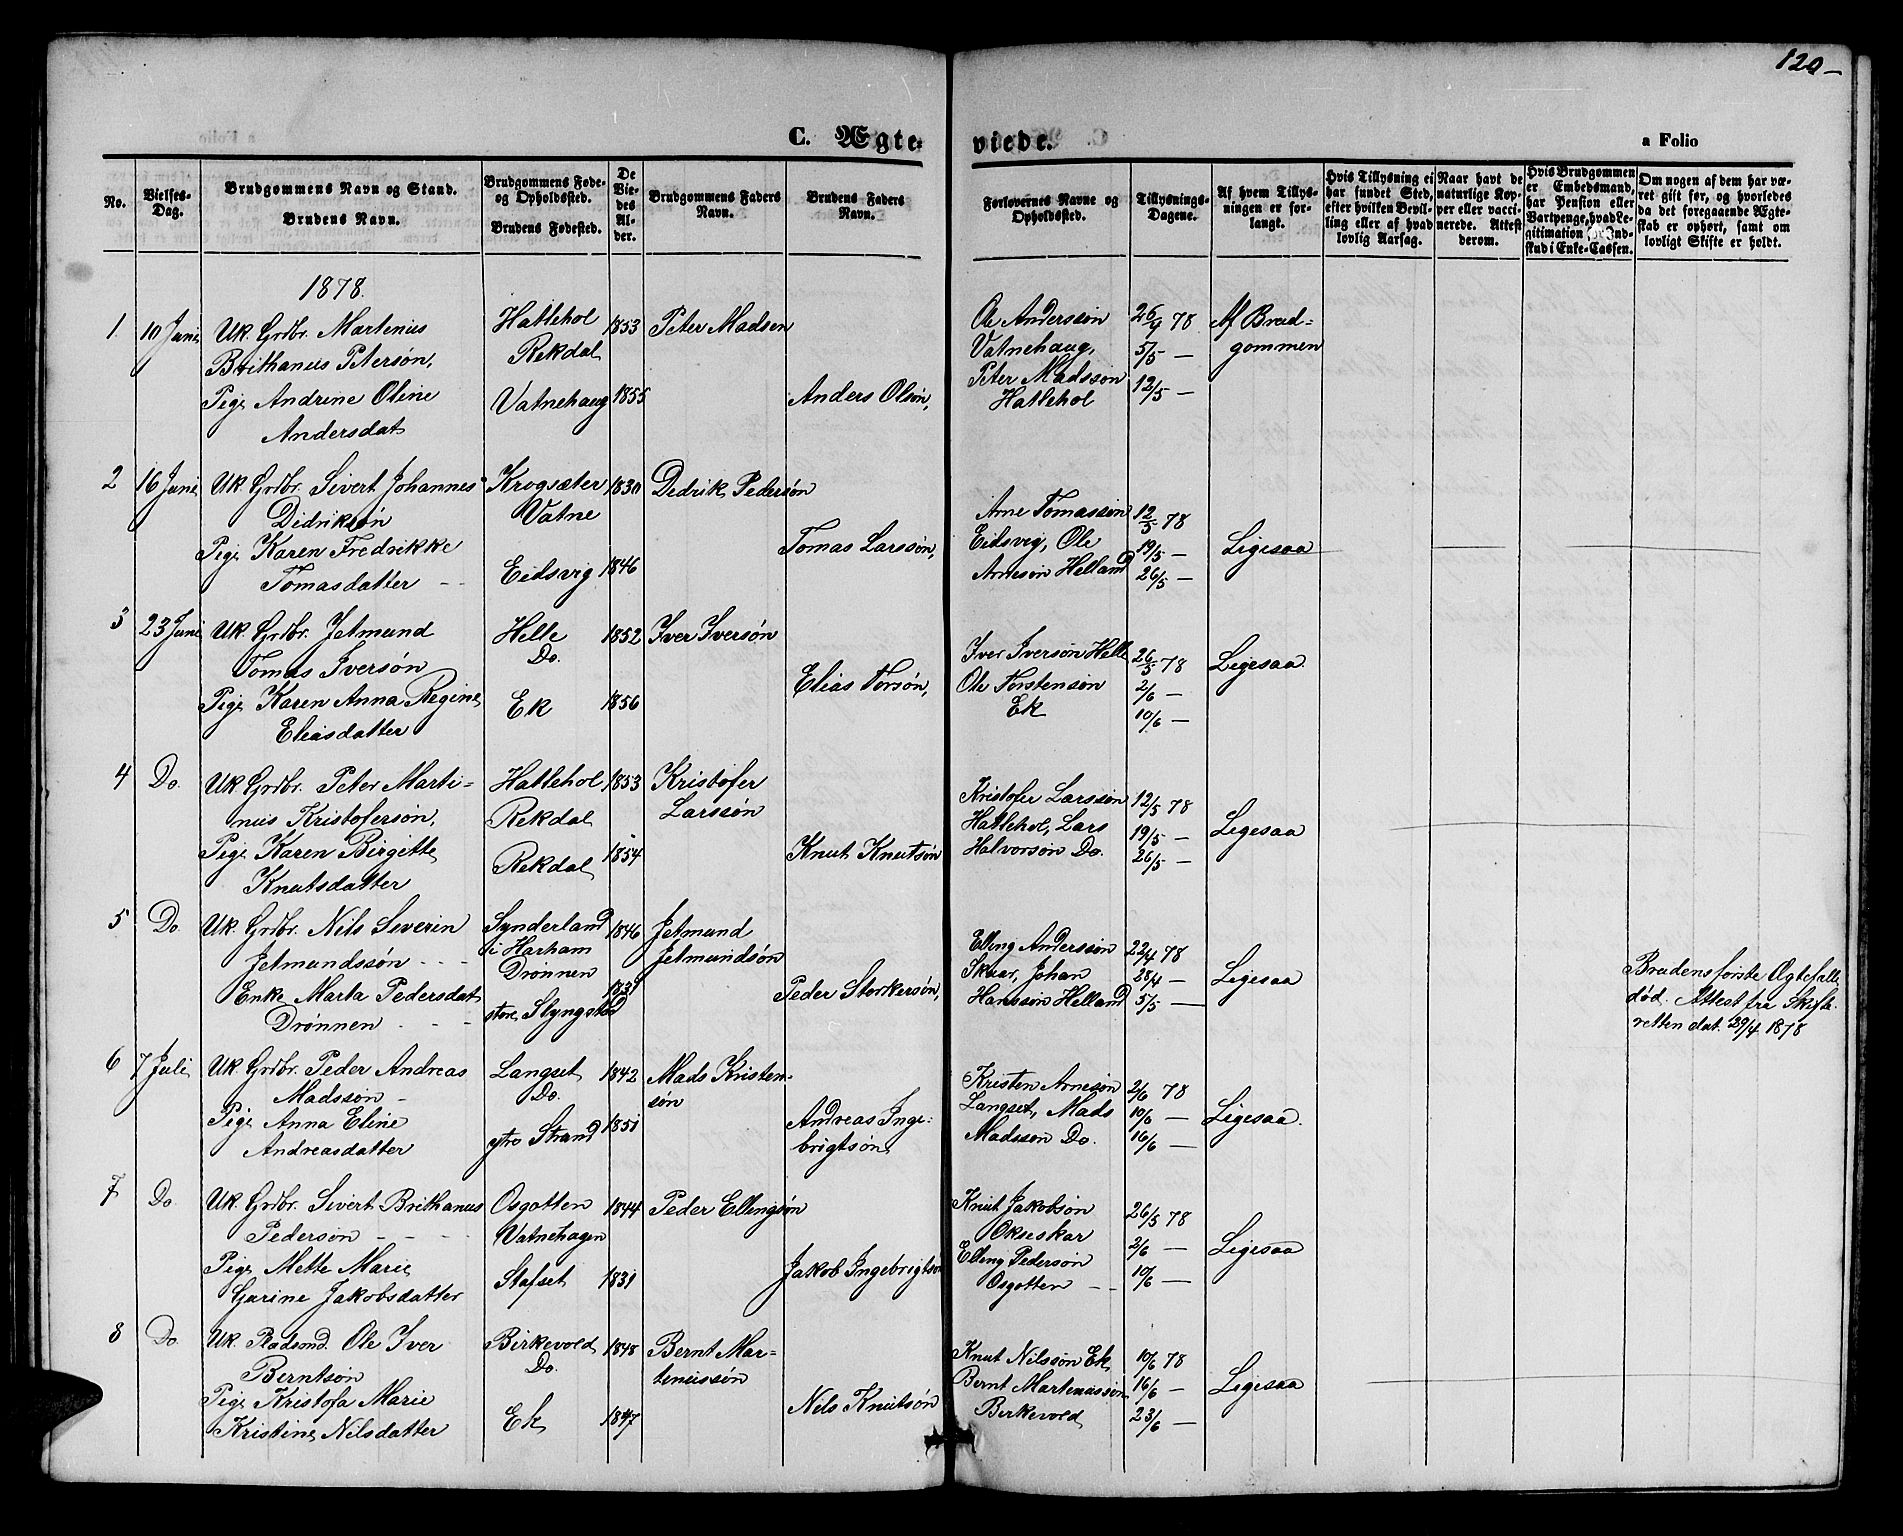 120-
C. Ægte-
viede.
a Folio
No.
Vielses-
Dag.
Brudgommens Navn og Stand.
Brudens Navn.
Brudgommens Føde-
og Opholdssted.
Brudens Fødested.
De
Vie-
des
Al-
der.
Brudgommens Faders
Navn.
Brudens Faders
Navn.
Forlovernes Navne og
Opholdssted.
Tillysnings-
Dagene.
Af hvem Tillys-
ningen er for-
langt.
Hvis Tillysning ei
har fundet Sted,
efter hvilken Bevil-
ling eller af hvad
lovlig Aarsag.
Naar havt de
naturlige Kop-
per eller vacci-
nerede. Attest
derom.
Hvis Brudgommen
er Embedsmand,
har Pension eller
Vartpenge, hvad Le-
gitimation
skud i Enke-Cassen.
Om nogen af dem har væ-
ret gift før, og hvorledes
da det foregaaende Ægte-
skab er ophørt, samt om
lovligt Skifte er holdt.
1878.
1. 10 Juni
Uk. Grdbr. Martenius
Brithanus Petersøn,
Pige Andrine Oline
Andersdat
Hatlehol
Rekdal
Vatnehaug
1853
1855
Peter Madsen
Anders Olsøn,
Ole Anderssøn
Vatnehaug,
Peter Madssøn
Hatlehol
26/4 78
5/5 —
12/5 —
Af Brud-
gommen
2 16 Juni
Uk. Grdbr. Sivert Johannes
Didriksøn
Pige Karen Fredrikke
Tomasdatter - -
Krogsæter
Vatne
Eidsvig
1830
1846
Dedrik Pedersøn
Tomas Larssøn,
Arne Tomassøn
Eidsvig, Ole
Arnesøn Helland
12/5 78
19/5 —
26/5 —
Ligesaa
3 23 Juni
Uk. Grdbr. Jetmund
Tomas Iversøn
Pige Karen Anna Regine
Eliasdatter
Helle
Do.
Ek
1852
1856
Iver Iversøn
Elias Torsøn,
Iver Iversøn Helle
Ole Torstensøn
Ek
26/5 78
2/6 —
10/6 —
Ligesaa.
4 Do.
Uk. Grdbr. Peter Marti-
nus Kristofersøn,
Pige Karen Birgitte
Knutsdatter
Hatlehol
Rekdal
Rekdal
1853
1854
Kristofer
Larssøn
Knut Knutsøn
Kristofer Larssøn
Hatlehol, Lars
Halvorsøn Do.
12/5 78
19/5 —
26/5 —
Ligesaa
5 Do.
Uk. Grdbr. Nils Severin
Jetmundssøn - - -
Enke Marta Pedersdat
Drønnen - - -
Synderland
i Harham
Drønnen
store Slyngstad
1846
Jetmund
Jetmundsøn
Peder Storkersøn,
Elling Anderssøn
Skaar, Johan
Hanssøn Helland
22/4 78
28/4 —
5/5 —
Ligesaa
Brudens første Ægtefælle
død. Attest fra Skifte-
retten dat. 29/4 1878
6 7 Juli
Uk. Grdbr. Peder Andreas
Madssøn -
Pige Anna Eline
Andreasdatter
Langset
Do.
ytre Strand
1842
1851
Mads Kristen-
søn
Andreas Inge-
brigtsøn
Kristen Arnesøn
Langset, Mads
Madssøn Do.
2/6 78
10/6 —
16/6 —
Ligesaa.
7 Do.
Uk. Grdbr. Sivert Brithanus
Pedersøn - - -
Pige Mette Marie
Gurine Jakobsdatter
Osgotten
Vatnehagen
Stafset
1844
1831
Peder Ellingsøn
Jakob Ingebrigtsøn
Knut Jakobsøn
Okseskar
Elling Pedersøn
Osgotten - -
26/5 78
2/6 —
10/6 —
Ligesaa
8 Do.
Uk. Pladsmd. Ole Iver
Berntsøn
Pige Kristofa Marie
Kristine Nilsdatter
Birkevold
Do.
Ek
1848
1847
Bernt Mar-
teniussøn
Nils Knutsøn
Knut Nilssøn Ek
Bernt Marteniussøn
Birkevold
10/6 78
16/6 —
23/6 —
Ligesaa